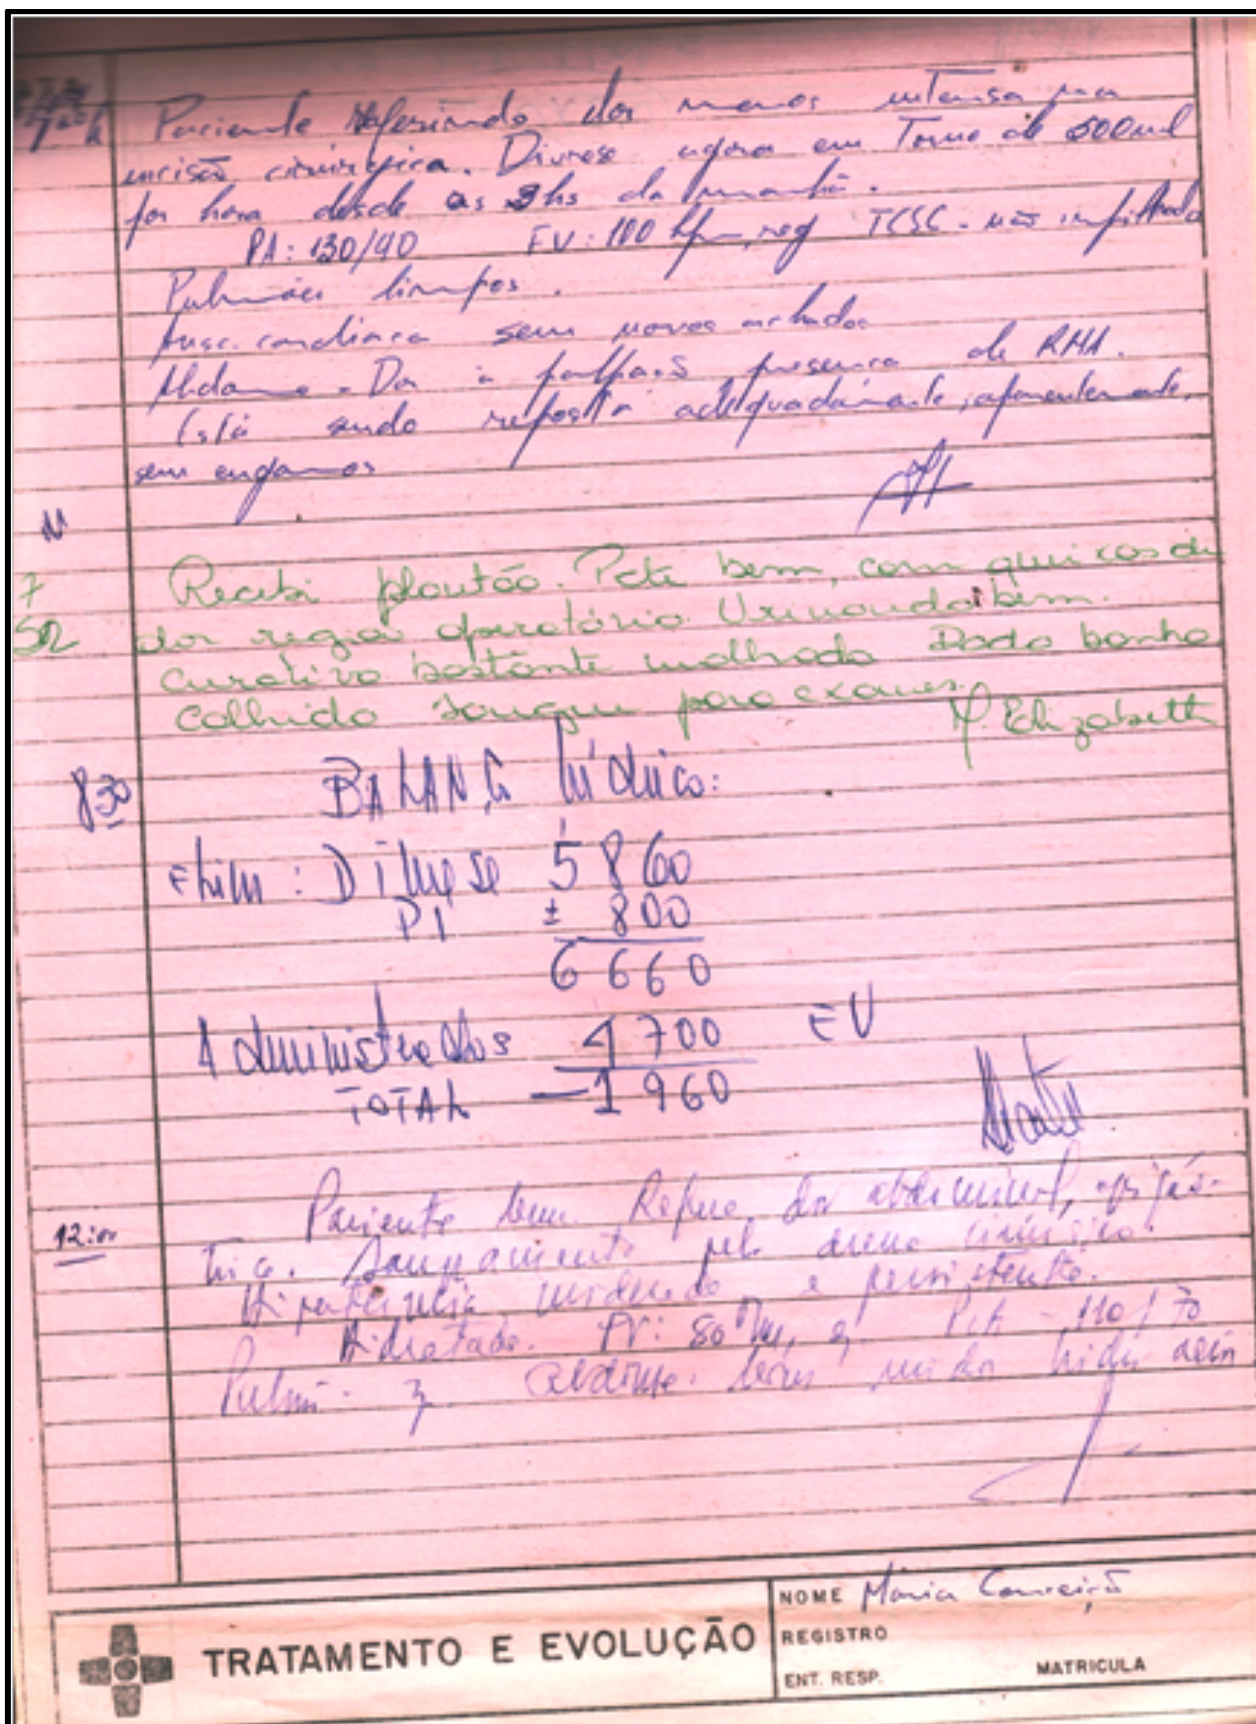 Paciente referindo dor menos intensa na
incisão cirúrgica. Diurese agora em Torno de 500ml
por hora desde as 3hs da manhã.
PA: 130/90 FV: 100 bpm, reg TCSC - não infiltrado
Pulmões limpos.
Ausc. cardiaca sem novos achados
Abdome - Dor à palpação presença de RHA.
Está sendo reposta adequadamente, aparentemente,
sem enganos
M
7
50
Recebi plantão. Pcte bem, com queixas de
dor região operatório. Urinando bem.
Curativo bastante molhado Dado banho
Colhido sangue para exames.
M. Elizabeth
8 30
BALANÇO hídrico:
Elim: Diurese 5860
PI ± 800
6660
Administrados 4700 EV
TOTAL -1960
12:00
Paciente bem. Refere dor abdominal, epigás-
trica. Sangramento pelo dreno cirúrgico.
moderado e persistente.
Hidratado. FV: 80 PA - 110/70
Pulmõ. abdome.
NOME Maria Conceição
TRATAMENTO E EVOLUÇÃO
REGISTRO
ENT. RESP. MATRICULA